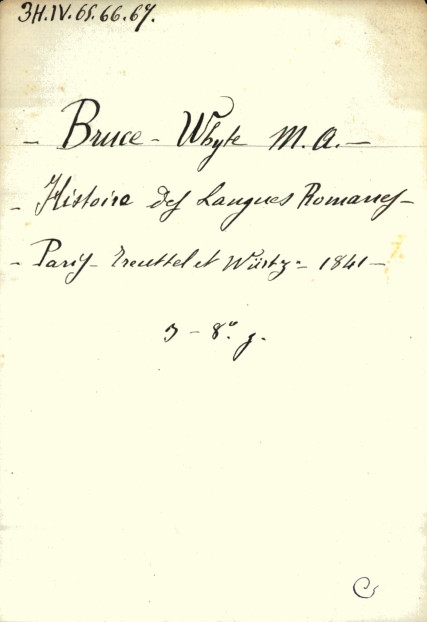 3H.IV.65.66.67.
- Bruce - Whyte M.A. -
- Histoire des Langues Romanes -
- Paris - Treuttel et Würtz - 1841 -
3 - 8º. g.